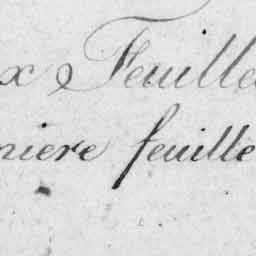 x Feuille
niere feuille